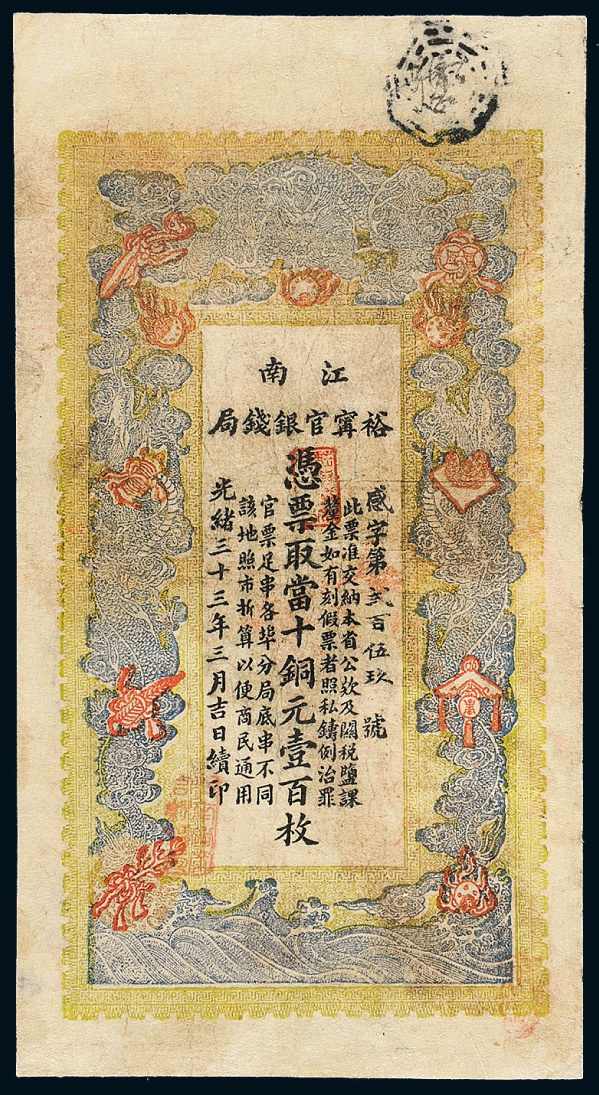 江南
裕寗官銀錢局
感字第貳百伍玖號
此票准交納本省公欵及關税鹽課
釐金如有刻假票者照私鑄例治罪
憑票取當十銅元壹百枚
官票足串各埠分局底串不同
該地照市折算以便商民通用
光緒三十三年三月吉日續印